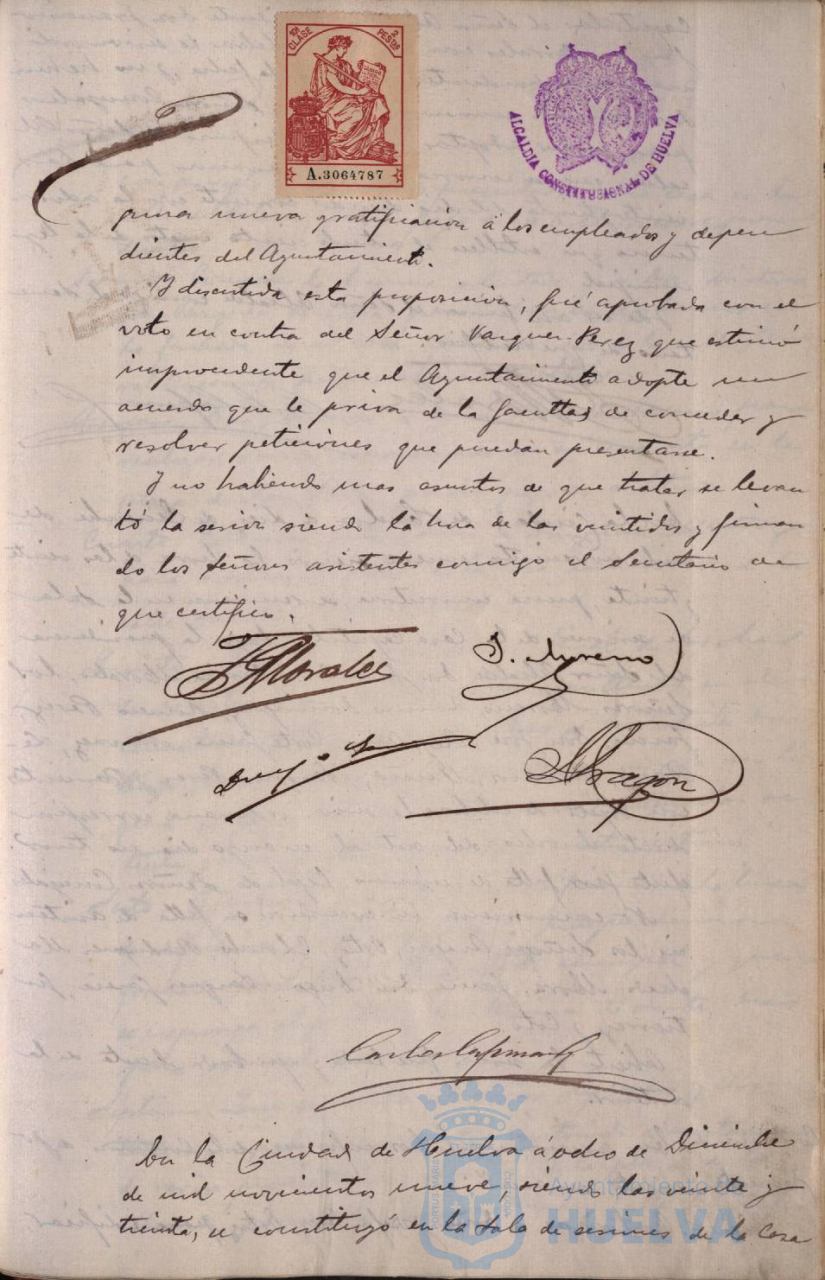 10ª CLASE 2 PESETAS
A.3064787
ALCALDIA CONSTITUCIONAL DE HUELVA
guna nueva gratificación á los empleados y depen
dientes del Ayuntamiento.
Y discutida esta proposición, fué aprobada con el
voto en contra del Señor Vazquez Perez que estimó
improcedente que el Ayuntamiento adopte un
acuerdo que le priva de la facultad de conceder y
resolver peticiones que puedan presentarse.
Y no habiendo mas asuntos de que tratar se levan
tó la sesion siendo la hora de las veintidos y firman
do los Señores asistentes conmigo el Secretario de
que certifico.
Morales
J. Moreno
Aragon
En la Ciudad de Huelva á ocho de Diciembre
de mil novecientos nueve, siendo las veinte y
treinta, se constituyó en la Sala de sesiones de la Casa
Ayuntamiento de
HUELVA